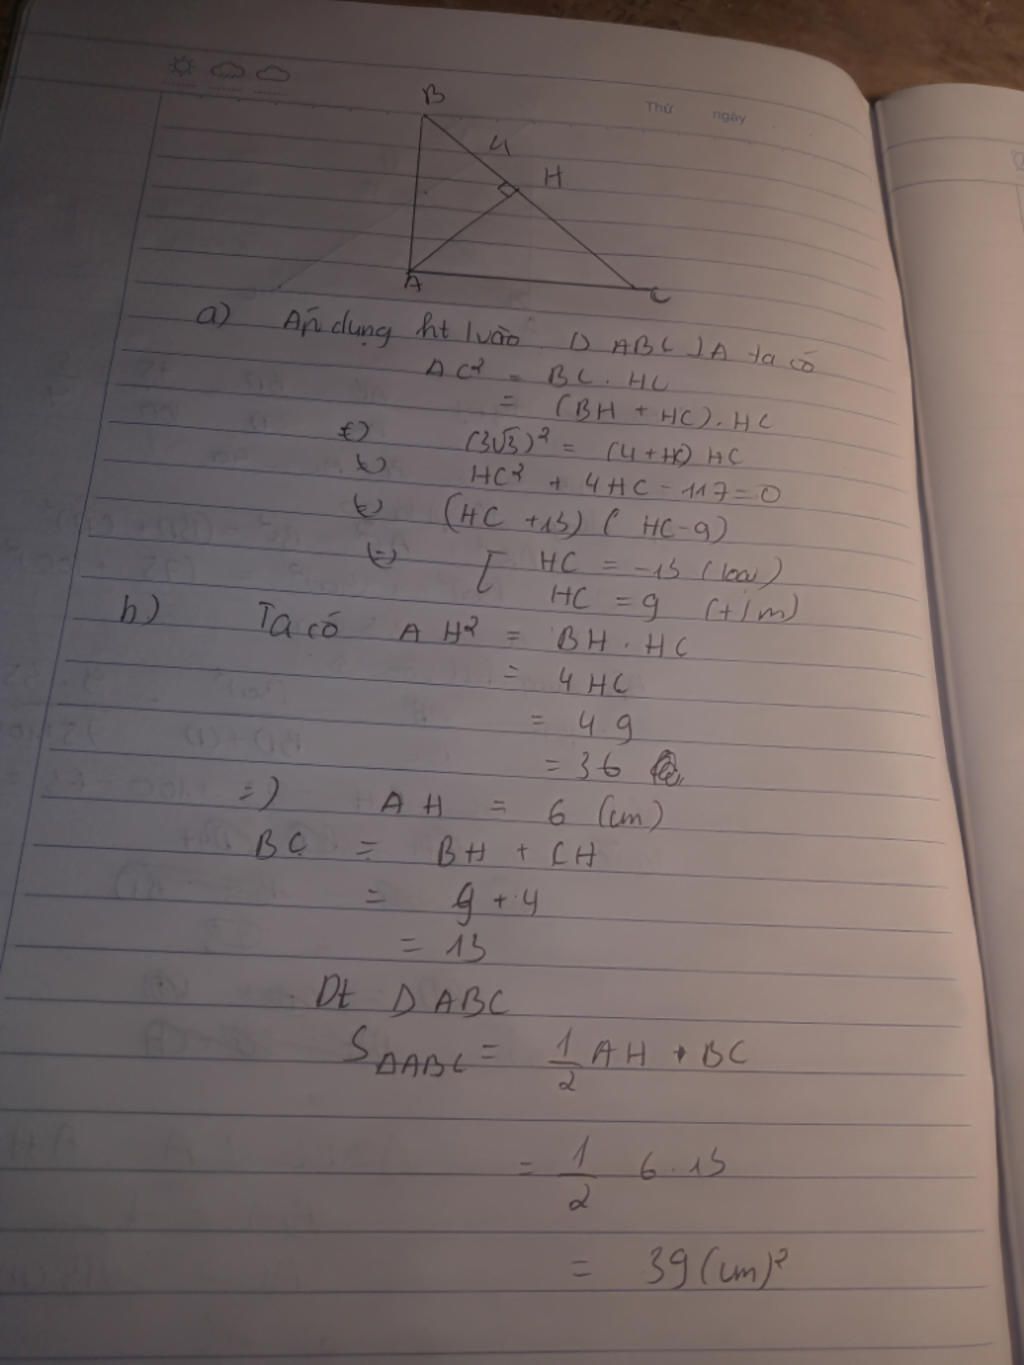 Thứ ngày
B
4
H
A
C
a) Áp dụng ht lvào Δ ABC ⊥ A ta có
AC² = BC . HC
= (BH + HC) . HC
(3√3)² = (4+HC) HC
HC² + 4HC - 117 = 0
(HC + 13) ( HC - 9)
[ HC = -13 (loại)
HC = 9 (t/m)
b) Ta có AH² = BH . HC
= 4 HC
= 4.9
= 36
=) AH = 6 (cm)
BC = BH + CH
= 9 + 4
= 13
Dt Δ ABC
SΔABC = 1/2 AH . BC
= 1/2 6 . 13
= 39 (cm)²